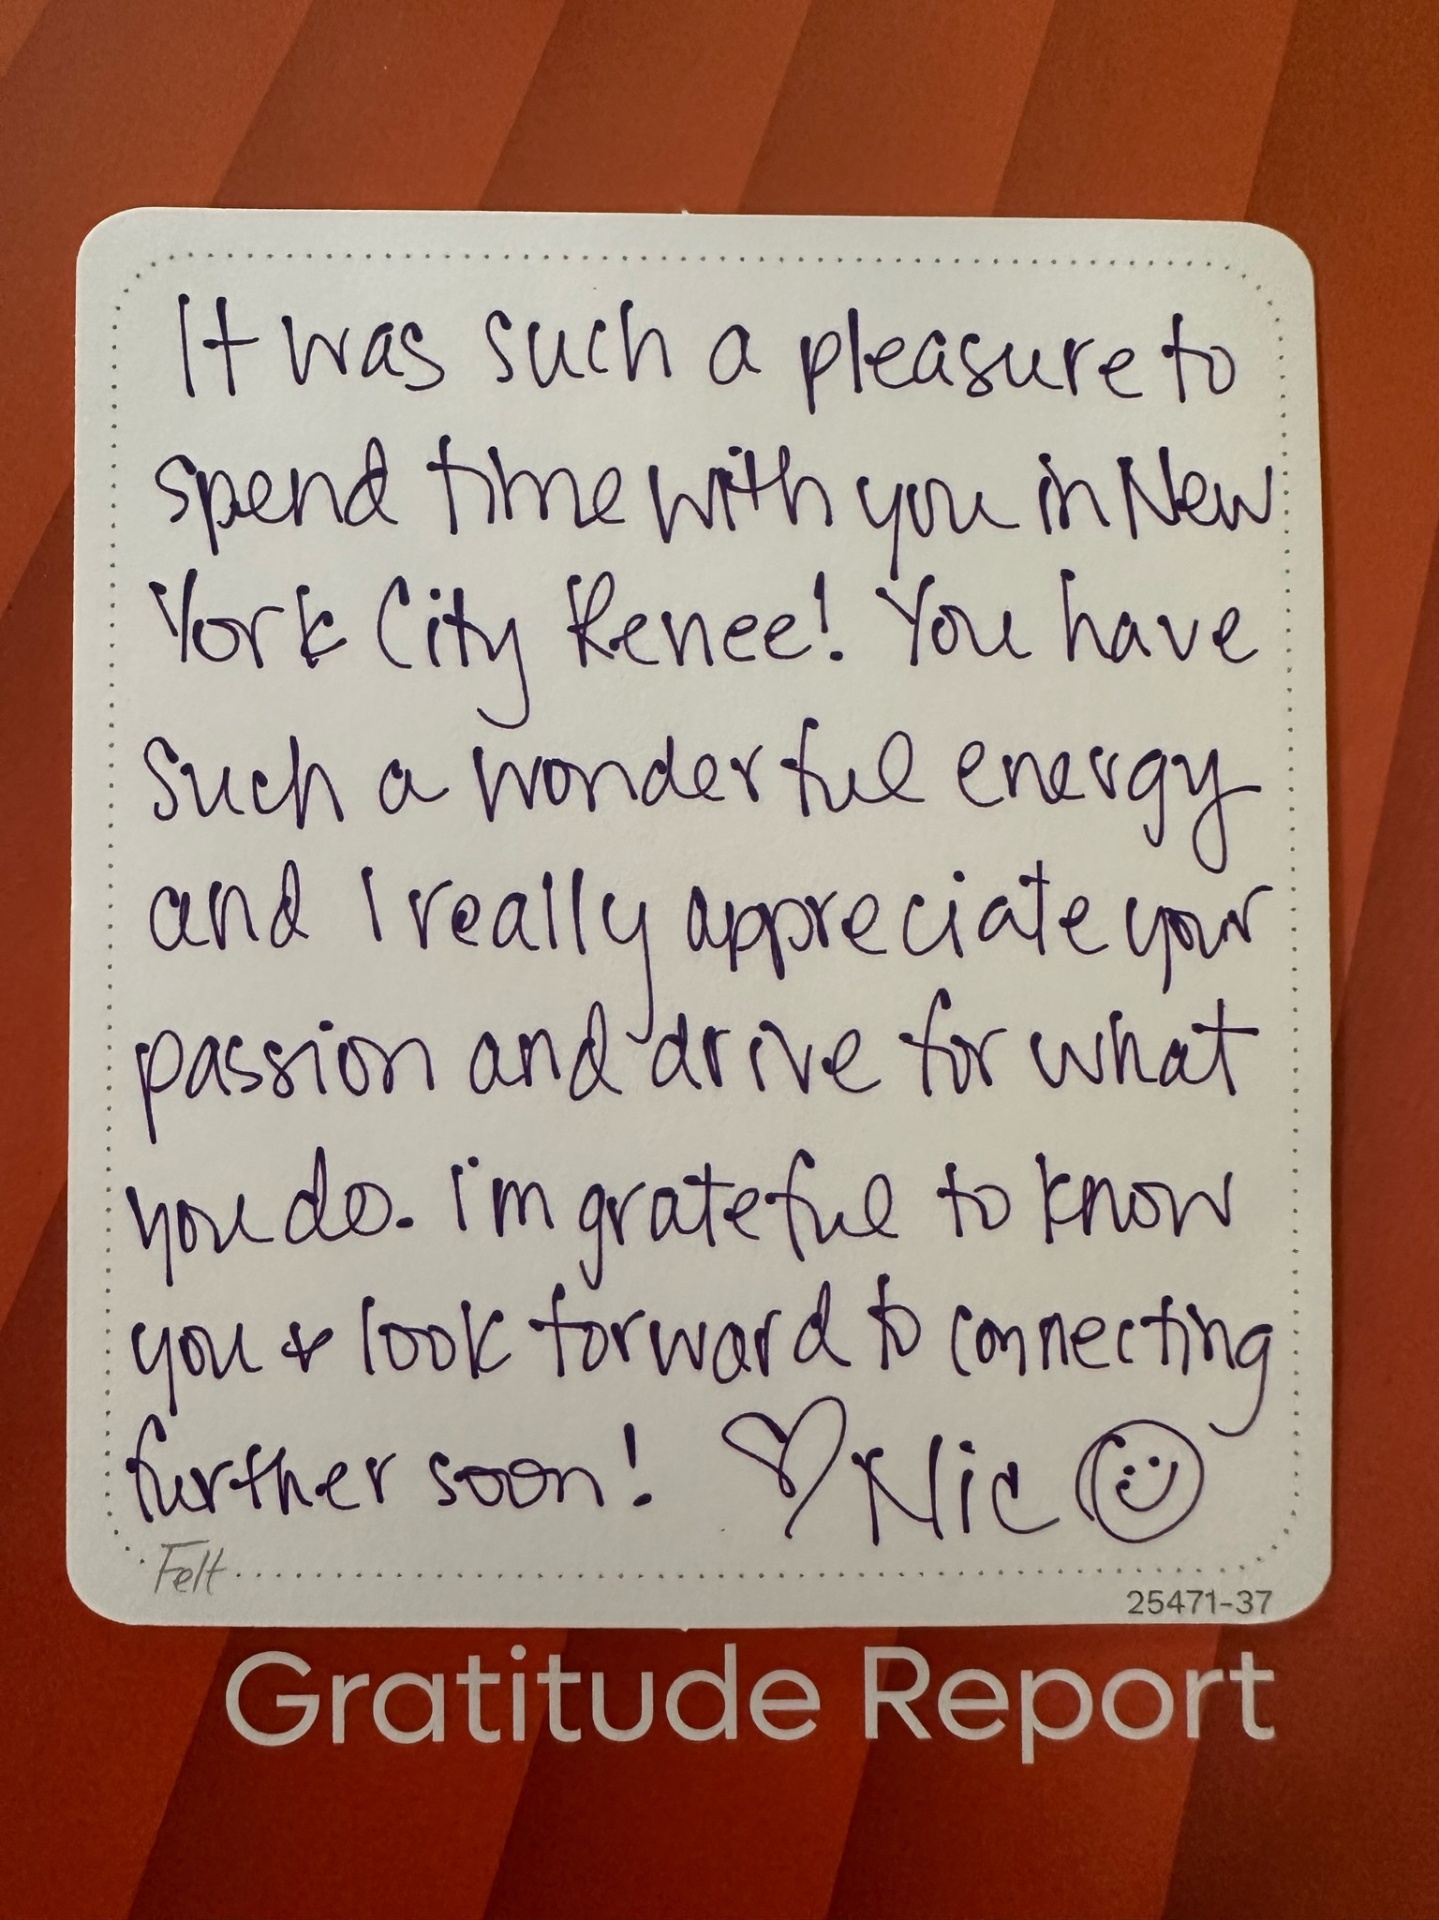 It was such a pleasure to
spend time with you in New
York City Renee! You have
such a wonderful energy
and I really appreciate your
passion and drive for what
you do. I'm grateful to know
you & look forward to connecting
further soon! ♡ Nic ☺
Felt
25471-37
Gratitude Report